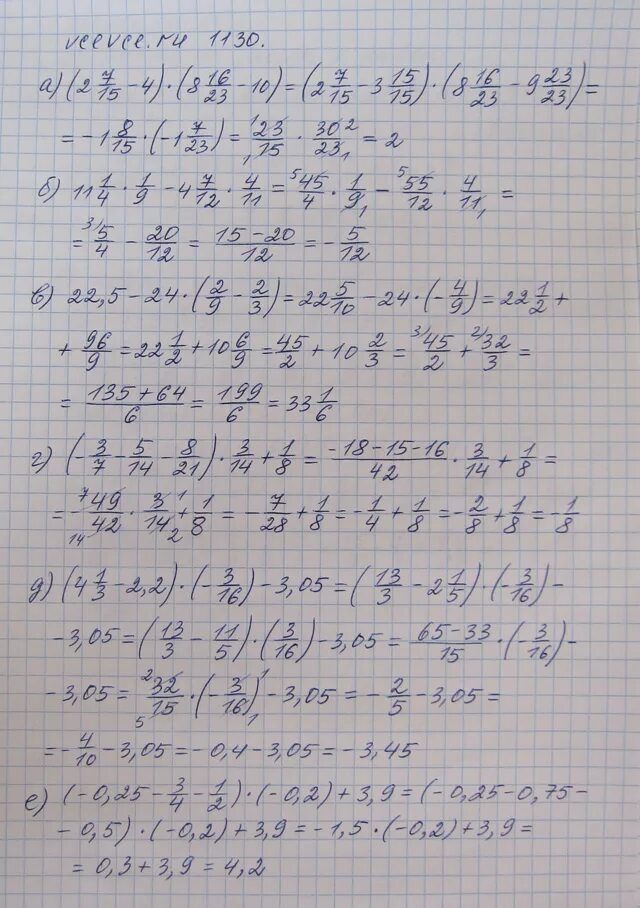 vcevce.ru 1130.
а) (2 7/15 - 4) · (8 16/23 - 10) = (2 7/15 - 3 15/15) · (8 16/23 - 9 23/23) =
= -1 8/15 · (-1 7/23) = ¹23/₁15 · 30²/23₁ = 2
б) 11 1/4 · 1/9 - 4 7/12 · 4/11 = ⁵45/4 · 1/9₁ - ⁵55/12 · 4/11₁ =
= ³⁾5/4 - 20/12 = 15-20/12 = - 5/12
в) 22,5 - 24 · (2/9 - 2/3) = 22 5/10 - 24 · (-4/9) = 22 1/2 +
+ 96/9 = 22 1/2 + 10 6/9 = 45/2 + 10 2/3 = ³⁾45/2 + ²⁾32/3 =
= 135+64/6 = 199/6 = 33 1/6
г) (-3/7 - 5/14 - 8/21) · 3/14 + 1/8 = -18-15-16/42 · 3/14 + 1/8 =
= - ⁷49/₁₄42 · 3¹/14₂ + 1/8 = - 7/28 + 1/8 = - 1/4 + 1/8 = - 2/8 + 1/8 = - 1/8
д) (4 1/3 - 2,2) · (-3/16) - 3,05 = (13/3 - 2 1/5) · (-3/16) -
- 3,05 = (13/3 - 11/5) · (3/16) - 3,05 = 65-33/15 · (-3/16) -
- 3,05 = ²32/₅15 · (-3/16)¹₁ - 3,05 = - 2/5 - 3,05 =
= - 4/10 - 3,05 = - 0,4 - 3,05 = - 3,45
е) (-0,25 - 3/4 - 1/2) · (-0,2) + 3,9 = (-0,25 - 0,75 -
- 0,5) · (-0,2) + 3,9 = -1,5 · (-0,2) + 3,9 =
= 0,3 + 3,9 = 4,2